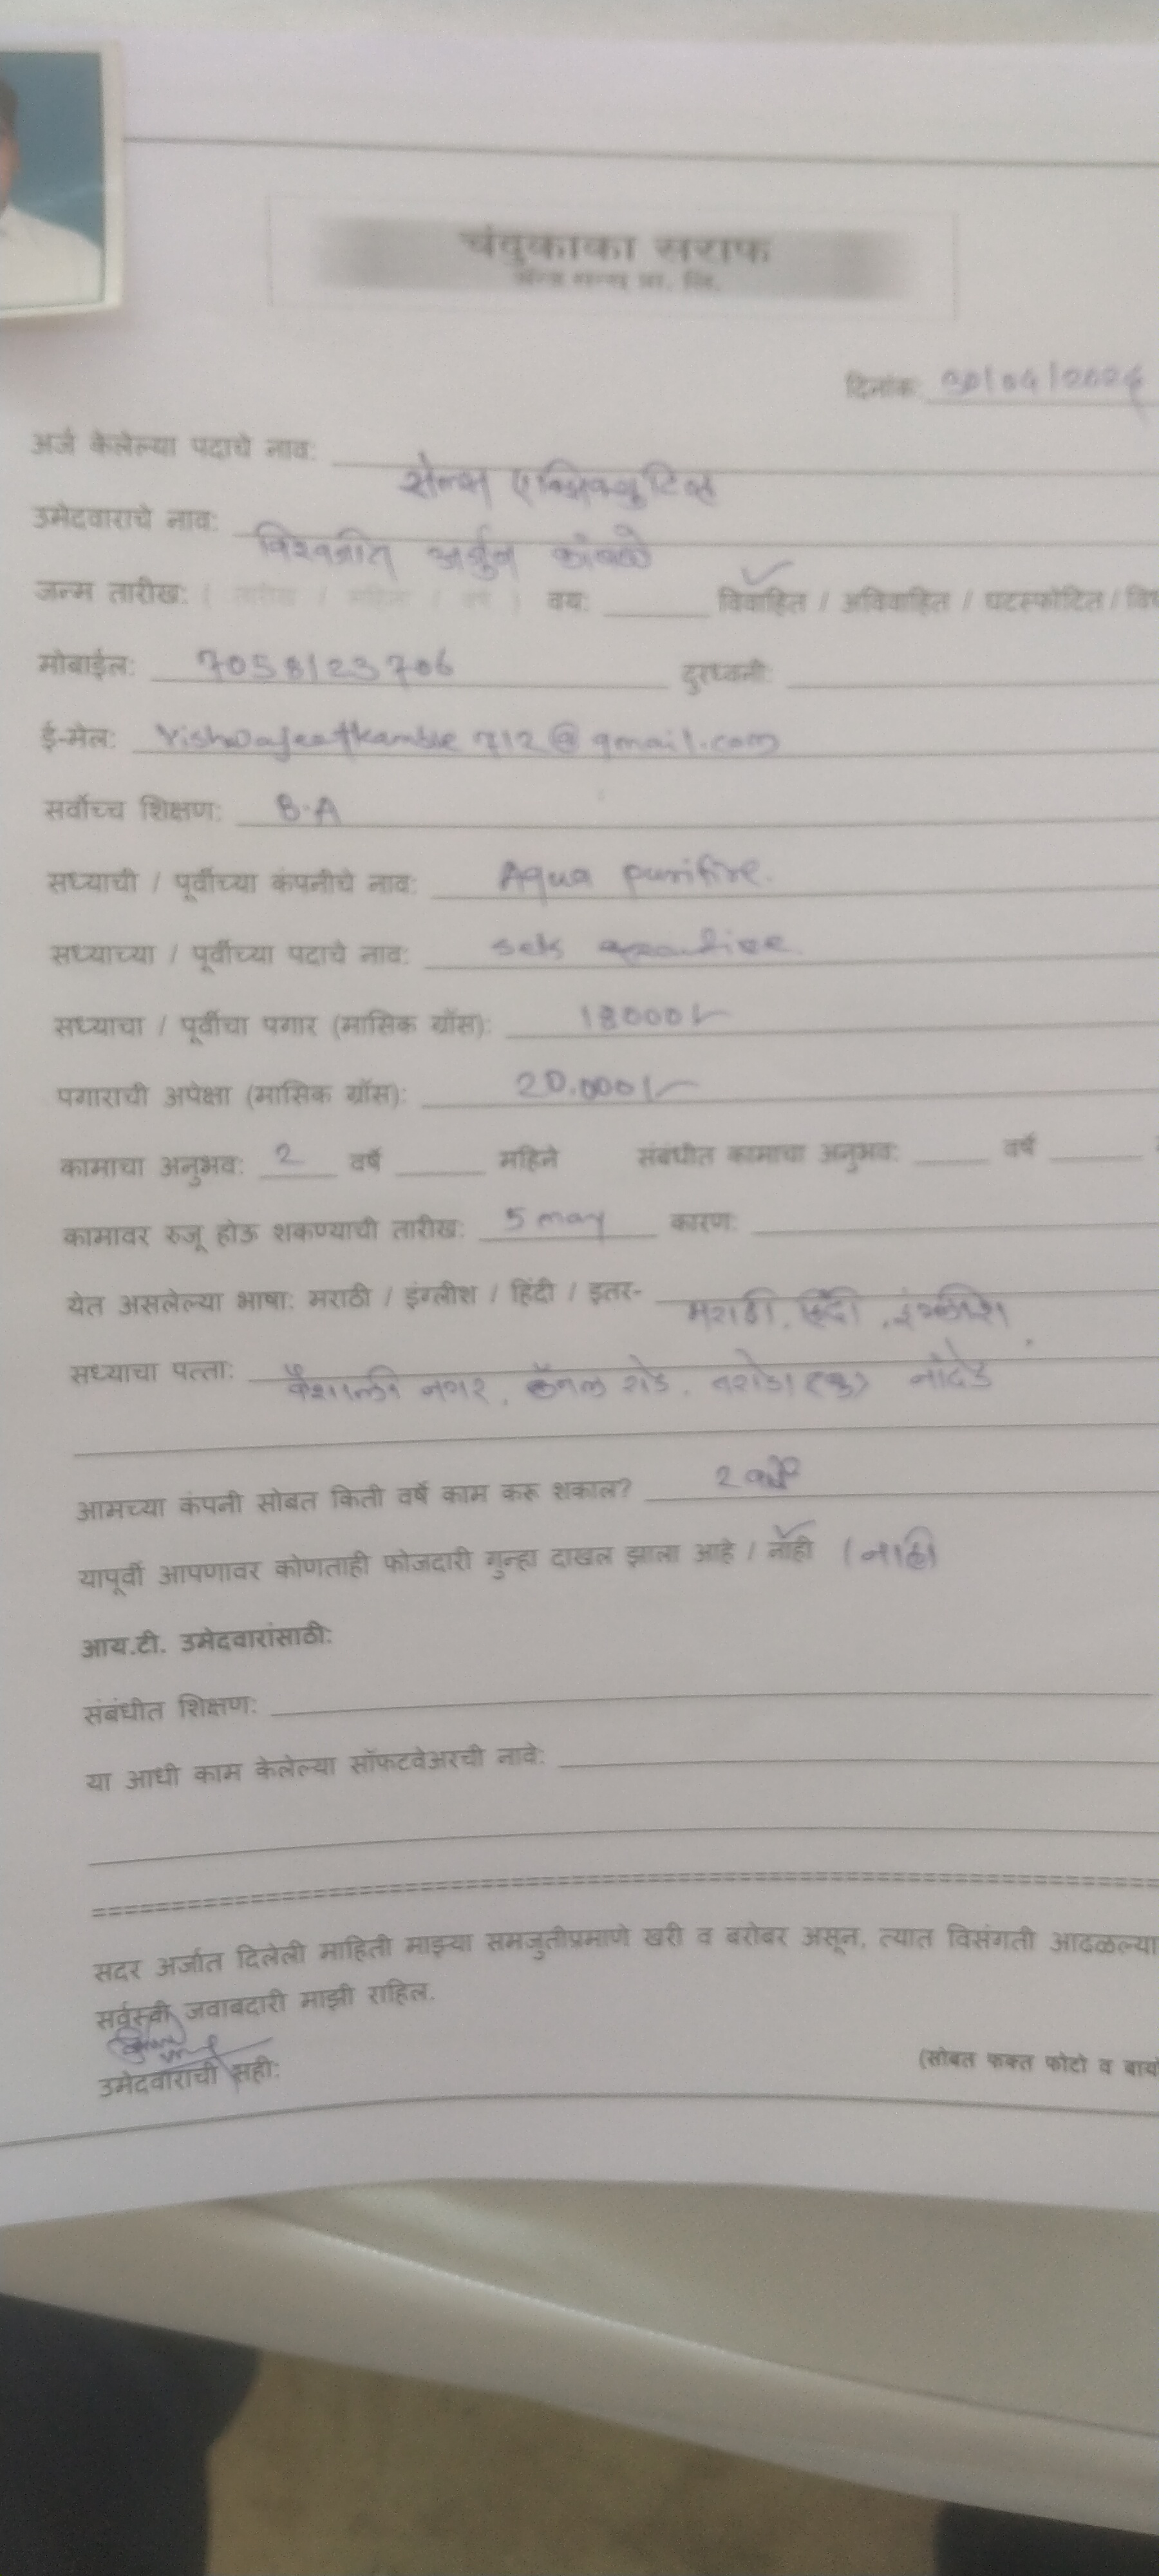 चंदुकाका सराफ
ॲन्ड सन्स प्रा. लि.
दिनांक:
अर्ज केलेल्या पदाचे नाव:
सेल्स एक्झिक्युटिव्ह
उमेदवाराचे नाव:
विश्वजीत अर्जुन कांबळे
जन्म तारीख: ( तारीख / महिना / वर्ष ) वय: विवाहित / अविवाहित / घटस्फोटित /
मोबाईल: 7058123706 दुरध्वनी:
ई-मेल: Vishwajeetkamble712@gmail.com
सर्वोच्च शिक्षण: B.A
सध्याची / पूर्वीच्या कंपनीचे नाव: Aqua purifire.
सध्याच्या / पूर्वीच्या पदाचे नाव:
सध्याचा / पूर्वीचा पगार (मासिक ग्रॉस): 18000/-
पगाराची अपेक्षा (मासिक ग्रॉस): 20,000/-
कामाचा अनुभव: 2 वर्षे महिने संबंधीत कामाचा अनुभव: वर्षे
कामावर रुजू होऊ शकण्याची तारीख: 5 may कारण:
येत असलेल्या भाषा: मराठी / इंग्लीश / हिंदी / इतर-
मराठी, हिंदी, इंग्लीश
सध्याचा पत्ता:
वैशाली नगर, कॅनल रोड, तरोडा (बु) नांदेड
आमच्या कंपनी सोबत किती वर्षे काम करू शकाल? 2 वर्षे
यापूर्वी आपणावर कोणताही फोजदारी गुन्हा दाखल झाला आहे / नाही (नाही)
आय.टी. उमेदवारांसाठी:
संबंधीत शिक्षण:
या आधी काम केलेल्या सॉफटवेअरची नावे:
सदर अर्जात दिलेली माहिती माझ्या समजुतीप्रमाणे खरी व बरोबर असून, त्यात विसंगती आढळल्या
सर्वस्वी जवाबदारी माझी राहिल.
उमेदवाराची सही:
(सोबत फक्त फोटो व